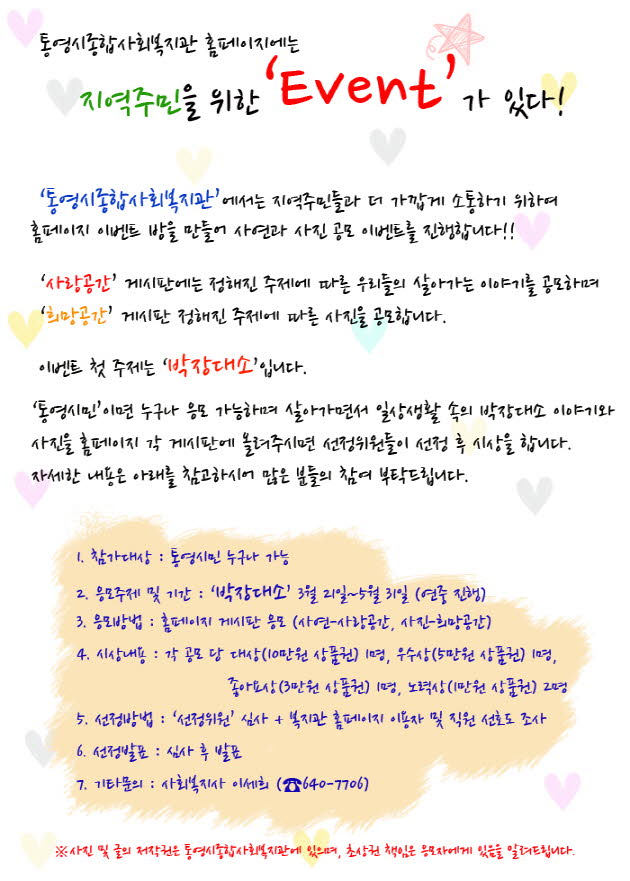 통영시종합사회복지관 홈페이지에는
지역주민을 위한 ‘Event’가 있다!
‘통영시종합사회복지관’에서는 지역주민들과 더 가깝게 소통하기 위하여
홈페이지 이벤트 방을 만들어 사연과 사진 공모 이벤트를 진행합니다!!
‘사랑공간’ 게시판에는 정해진 주제에 따른 우리들의 살아가는 이야기를 공모하며
‘희망공간’ 게시판 정해진 주제에 따른 사진을 공모합니다.
이벤트 첫 주제는 ‘박장대소’입니다.
‘통영시민’이면 누구나 응모 가능하며 살아가면서 일상생활 속의 박장대소 이야기와
사진을 홈페이지 각 게시판에 올려주시면 선정위원들이 선정 후 시상을 합니다.
자세한 내용은 아래를 참고하시어 많은 분들의 참여 부탁드립니다.
1. 참가대상 : 통영시민 누구나 가능
2. 응모주제 및 기간 : ‘박장대소’ 3월 21일~5월 31일 (연중 진행)
3. 응모방법 : 홈페이지 게시판 응모 (사연-사랑공간, 사진-희망공간)
4. 시상내용 : 각 공모 당 대상(10만원 상품권) 1명, 우수상(5만원 상품권) 1명,
좋아요상(3만원 상품권) 1명, 노력상(1만원 상품권) 2명
5. 선정방법 : ‘선정위원’ 심사 + 복지관 홈페이지 이용자 및 직원 선호도 조사
6. 선정발표 : 심사 후 발표
7. 기타문의 : 사회복지사 이세희 (☎640-7706)
※사진 및 글의 저작권은 통영시종합사회복지관에 있으며, 초상권 책임은 응모자에게 있음을 알려드립니다.